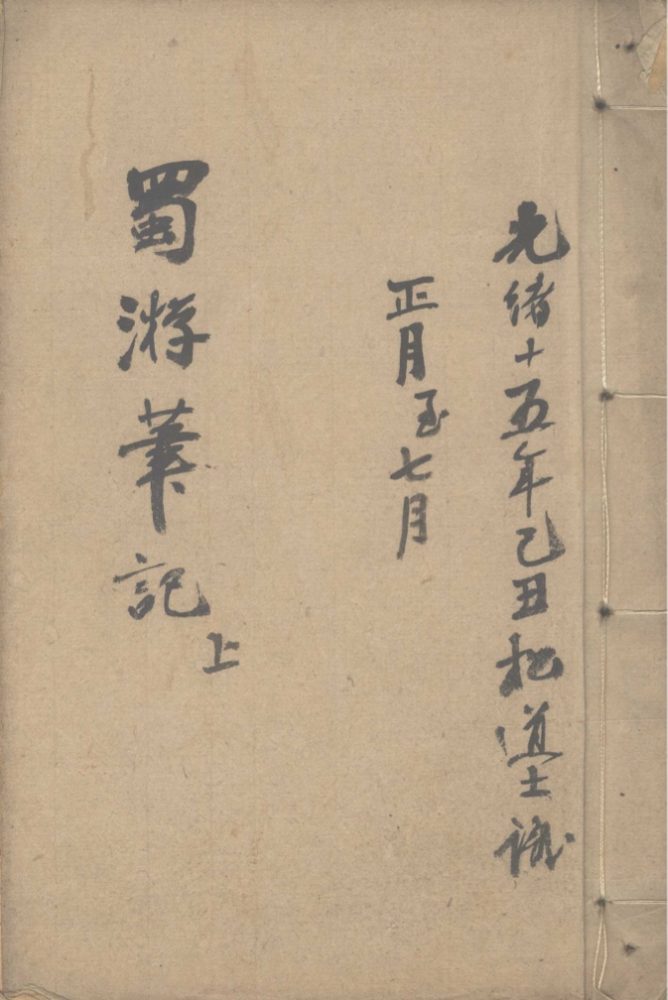 光緒十五年己丑
正月至七月
蜀游筆記
上